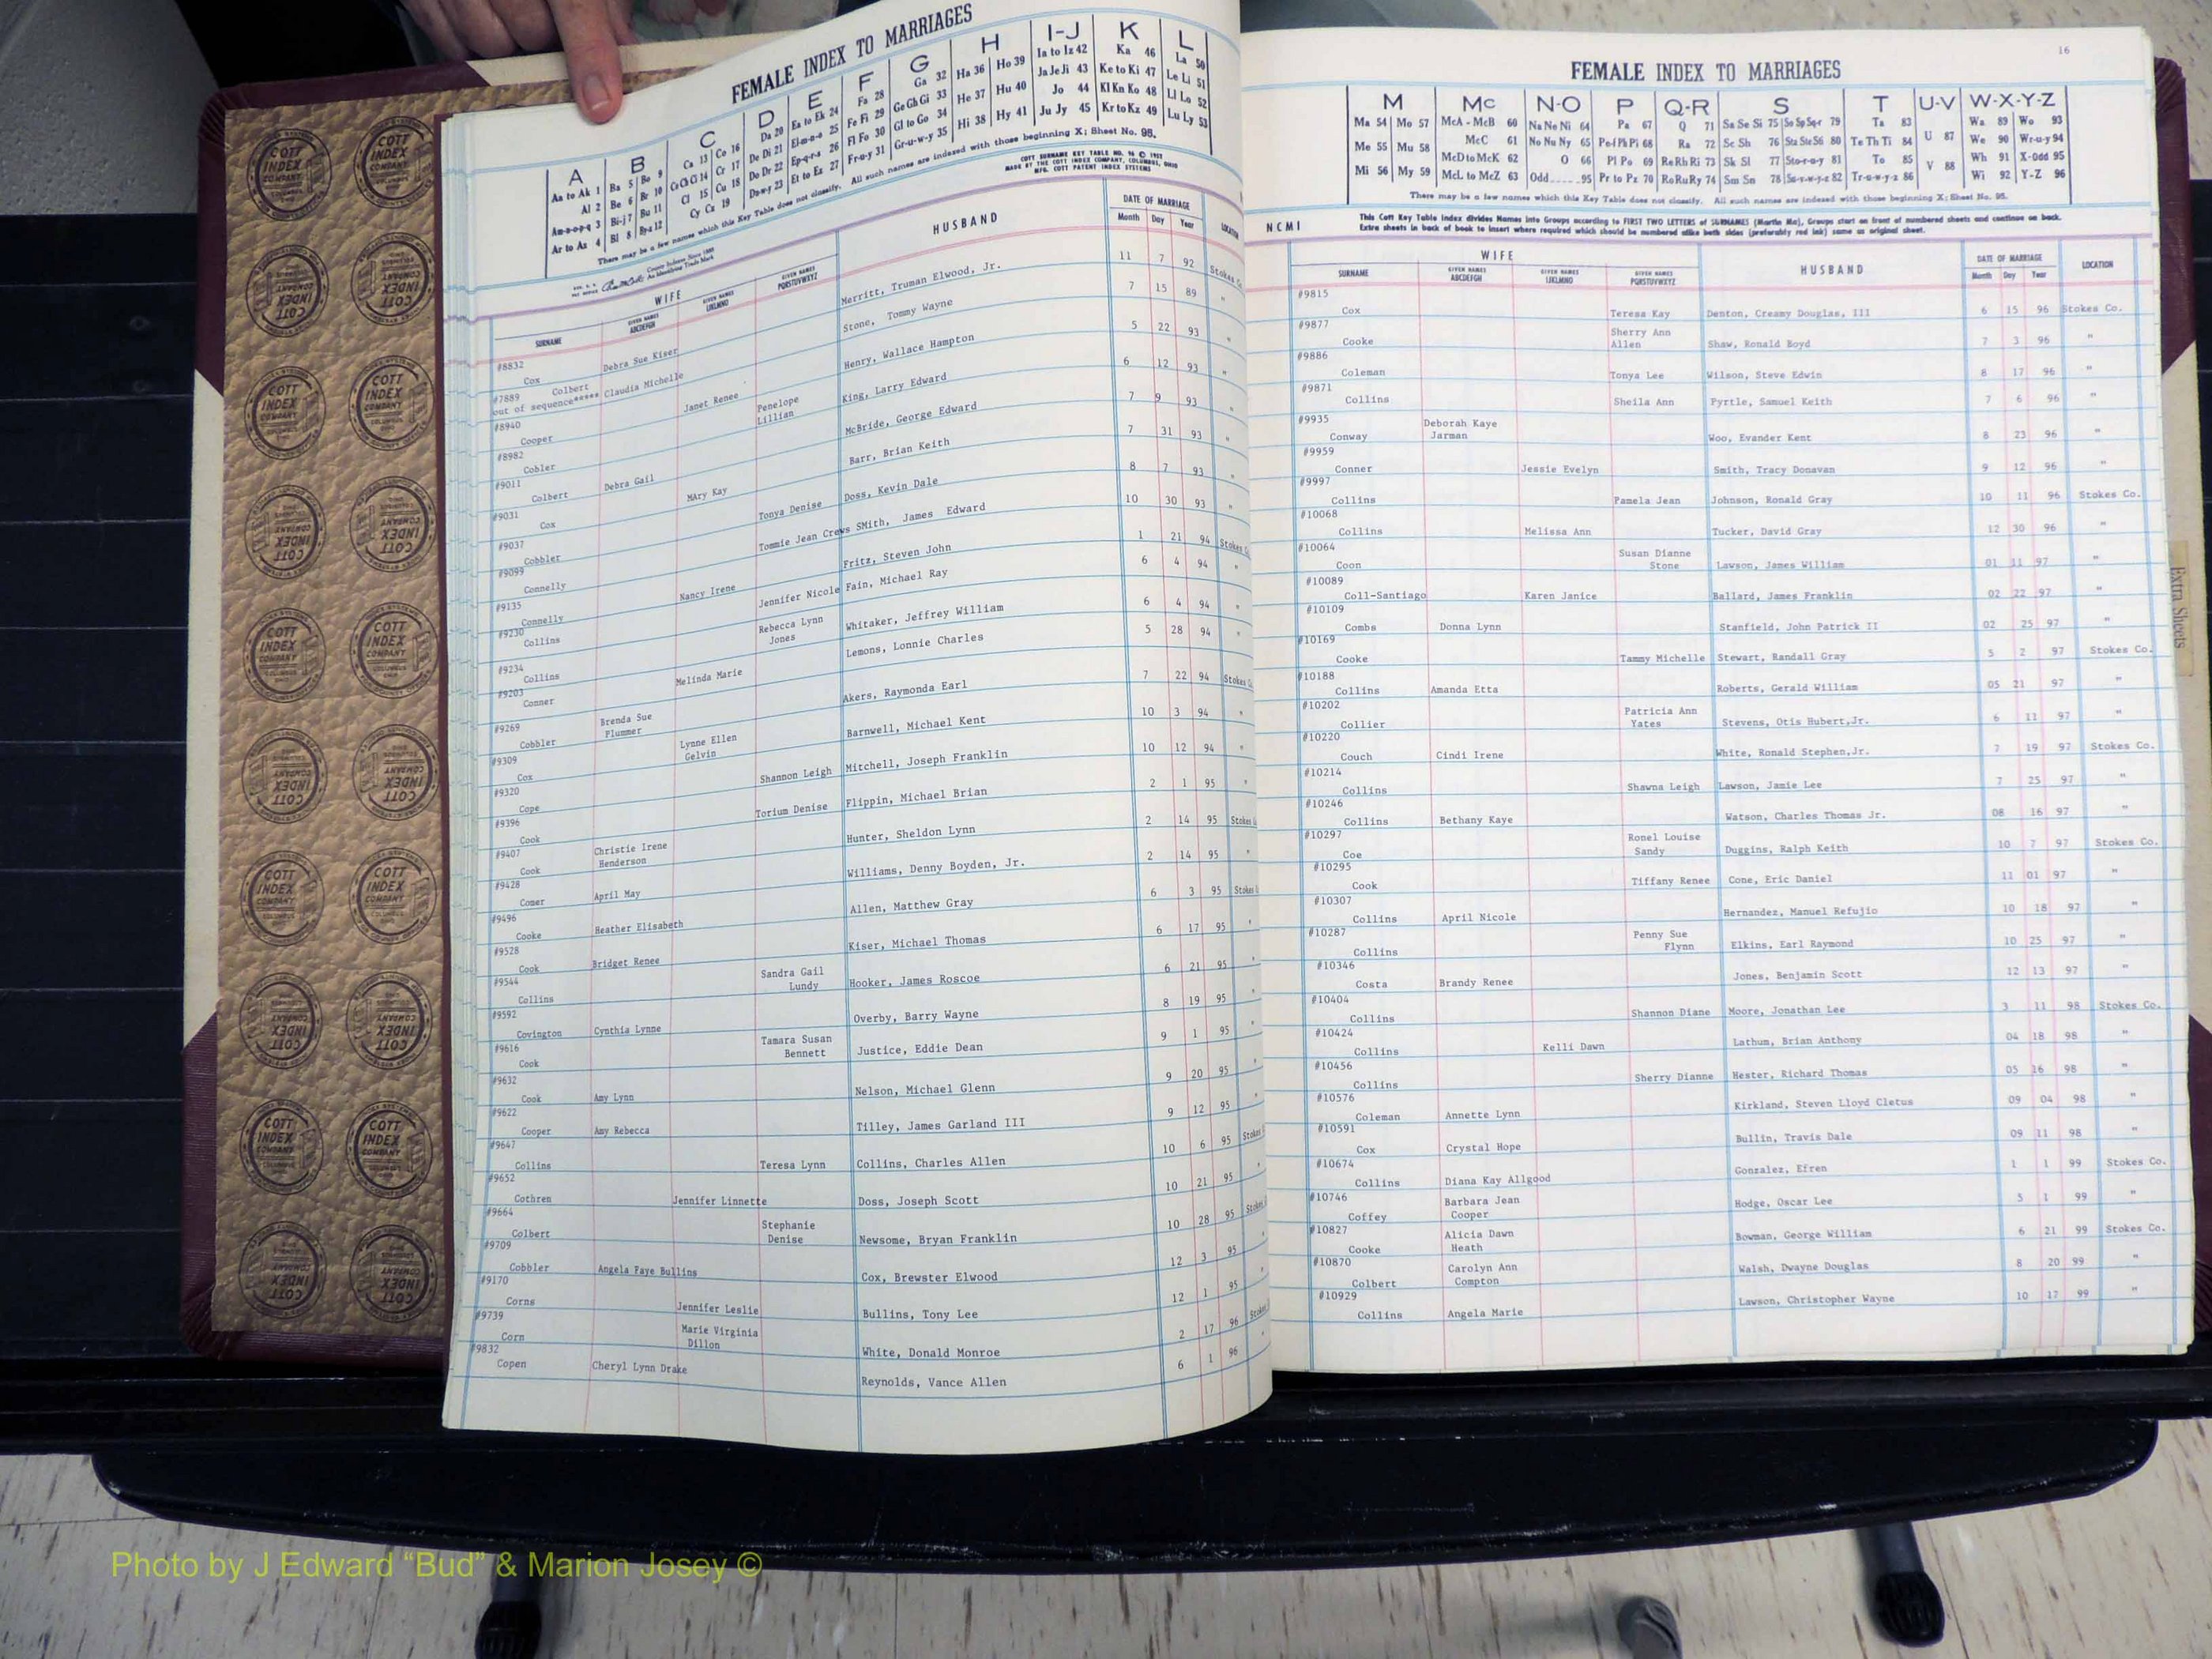 FEMALE INDEX TO MARRIAGES
A B C D E F G H I-J K L
Aa to Ak 1 Ba 5 Bo 9 Ca 13 Co 16 Da 20 Ea to Ek 24 Fa 28 Ga 32 Ha 36 Ho 39 Ia to Iz 42 Ka 46 La 50
Al 2 Be 6 Br 10 Ce Ch Ci 14 Cr 17 De Di 21 El-m-n-o 25 Fe Fi 29 Ge Gh Gi 33 He 37 Hu 40 Ja Je Ji 43 Ke to Ki 47 Le Li 51
Am-n-o-p-q 3 Bi-j 7 Bu 11 Cl 15 Cu 18 Do Dr 22 Ep-q-r-s 26 Fl Fo 30 Gl to Go 34 Hi 38 Hy 41 Jo 44 Kl Kn Ko 48 Ll Lo 52
Ar to Az 4 Bl 8 Bya 12 Cy Cz 19 Du-w-y 23 Et to Ez 27 Fr-u-y 31 Gr-u-w-y 35 Ju Jy 45 Kr to Kz 49 Lu Ly 53
There may be a few names which this Key Table does not classify. All such names are indexed with those beginning X; Sheet No. 95.
COTT SURNAME KEY TABLE NO. 96 © 1952
MADE BY THE COTT INDEX COMPANY, COLUMBUS, OHIO
MFG. COTT PATENT INDEX SYSTEMS
WIFE HUSBAND DATE OF MARRIAGE
SURNAME GIVEN NAMES ABCDEFGH GIVEN NAMES IJKLMNO GIVEN NAMES PQRSTUVWXYZ Month Day Year
#8832 Cox Debra Sue Kiser Merritt, Truman Elwood, Jr. 11 7 92 Stokes
#7889 Colbert Claudia Michelle Stone, Tommy Wayne 7 15 89 "
out of sequence*****
#8940 Cooper Janet Renee Henry, Wallace Hampton 5 22 93 "
#8982 Cobler Penelope Lillian King, Larry Edward 6 12 93 "
#9011 Colbert Debra Gail McBride, George Edward 7 9 93 "
#9031 Cox MAry Kay Barr, Brian Keith 7 31 93 "
#9037 Cobbler Tonya Denise Doss, Kevin Dale 8 7 93 "
#9099 Connelly Tommie Jean Crews SMith, James Edward 10 30 93 "
#9135 Connelly Nancy Irene Fritz, Steven John 1 21 94 Stokes
#9230 Collins Jennifer Nicole Fain, Michael Ray 6 4 94 "
#9234 Collins Rebecca Lynn Jones Whitaker, Jeffrey William 6 4 94 "
#9203 Conner Melinda Marie Lemons, Lonnie Charles 5 28 94 "
#9269 Cobbler Brenda Sue Plummer Akers, Raymonda Earl 7 22 94 Stokes
#9309 Cox Lynne Ellen Gelvin Barnwell, Michael Kent 10 3 94 "
#9320 Cope Shannon Leigh Mitchell, Joseph Franklin 10 12 94 "
#9396 Cook Torium Denise Flippin, Michael Brian 2 1 95 "
#9407 Cook Christie Irene Henderson Hunter, Sheldon Lynn 2 14 95 Stokes
#9428 Comer April May Williams, Denny Boyden, Jr. 2 14 95 "
#9496 Cooke Heather Elisabeth Allen, Matthew Gray 6 3 95 Stokes
#9528 Cook Bridget Renee Kiser, Michael Thomas 6 17 95 "
#9544 Collins Sandra Gail Lundy Hooker, James Roscoe 6 21 95 "
#9592 Covington Cynthia Lynne Overby, Barry Wayne 8 19 95 "
#9616 Cook Tamara Susan Bennett Justice, Eddie Dean 9 1 95 "
#9632 Cook Amy Lynn Nelson, Michael Glenn 9 20 95 "
#9622 Cooper Amy Rebecca Tilley, James Garland III 9 12 95 "
#9647 Collins Teresa Lynn Collins, Charles Allen 10 6 95 Stokes
#9652 Cothren Jennifer Linnette Doss, Joseph Scott 10 21 95 "
#9664 Colbert Stephanie Denise Newsome, Bryan Franklin 10 28 95 Stokes
#9709 Cobbler Angela Faye Bullins Cox, Brewster Elwood 12 3 95 "
#9170 Corns Jennifer Leslie Bullins, Tony Lee 12 1 95 "
#9739 Corn Marie Virginia Dillon White, Donald Monroe 2 17 96 Stokes
#9832 Copen Cheryl Lynn Drake Reynolds, Vance Allen 6 1 96 "
16
FEMALE INDEX TO MARRIAGES
M Mc N-O P Q-R S T U-V W-X-Y-Z
Ma 54 Mo 57 McA - McB 60 Na Ne Ni 64 Pa 67 Q 71 Sa Se Si 75 So Sp Sq-r 79 Ta 83 U 87 Wa 89 Wo 93
Me 55 Mu 58 McC 61 No Nu Ny 65 Pe Pf Ph Pi 68 Ra 72 Sc Sh 76 Sta Ste Sti 80 Te Th Ti 84 V 88 We 90 Wr-u-y 94
Mi 56 My 59 McD to McK 62 O 66 Pl Po 69 Re Rh Ri 73 Sk Sl 77 Sto-r-u-y 81 To 85 Wh 91 X-Odd 95
McL to McZ 63 Odd 95 Pr to Pz 70 Ro Ru Ry 74 Sm Sn 78 Su-v-w-y-z 82 Tr-u-w-y-z 86 Wi 92 Y-Z 96
There may be a few names which this Key Table does not classify. All such names are indexed with those beginning X; Sheet No. 95.
NCMI This Cott Key Table Index divides Names into Groups according to FIRST TWO LETTERS of SURNAMES (Martin Ma), Groups start on front of numbered sheets and continue on back.
Extra sheets in back of book to insert where required which should be numbered alike both sides (preferably red ink) same as original sheet.
WIFE HUSBAND DATE OF MARRIAGE LOCATION
SURNAME GIVEN NAMES ABCDEFGH GIVEN NAMES IJKLMNO GIVEN NAMES PQRSTUVWXYZ Month Day Year
#9815 Cox Teresa Kay Denton, Creamy Douglas, III 6 15 96 Stokes Co.
#9877 Cooke Sherry Ann Allen Shaw, Ronald Boyd 7 3 96 "
#9886 Coleman Tonya Lee Wilson, Steve Edwin 8 17 96 "
#9871 Collins Sheila Ann Pyrtle, Samuel Keith 7 6 96 "
#9935 Conway Deborah Kaye Jarman Woo, Evander Kent 8 23 96 "
#9959 Conner Jessie Evelyn Smith, Tracy Donavan 9 12 96 "
#9997 Collins Pamela Jean Johnson, Ronald Gray 10 11 96 Stokes Co.
#10068 Collins Melissa Ann Tucker, David Gray 12 30 96 "
#10064 Coon Susan Dianne Stone Lawson, James William 01 11 97 "
#10089 Coll-Santiago Karen Janice Ballard, James Franklin 02 22 97 "
#10109 Combs Donna Lynn Stanfield, John Patrick II 02 25 97 "
#10169 Cooke Tammy Michelle Stewart, Randall Gray 5 2 97 Stokes Co.
#10188 Collins Amanda Etta Roberts, Gerald William 05 21 97 "
#10202 Collier Patricia Ann Yates Stevens, Otis Hubert,Jr. 6 11 97 "
#10220 Couch Cindi Irene White, Ronald Stephen,Jr. 7 19 97 Stokes Co.
#10214 Collins Shawna Leigh Lawson, Jamie Lee 7 25 97 "
#10246 Collins Bethany Kaye Watson, Charles Thomas Jr. 08 16 97 "
#10297 Coe Ronel Louise Sandy Duggins, Ralph Keith 10 7 97 Stokes Co.
#10295 Cook Tiffany Renee Cone, Eric Daniel 11 01 97 "
#10307 Collins April Nicole Hernandez, Manuel Refujio 10 18 97 "
#10287 Collins Penny Sue Flynn Elkins, Earl Raymond 10 25 97 "
#10346 Costa Brandy Renee Jones, Benjamin Scott 12 13 97 "
#10404 Collins Shannon Diane Moore, Jonathan Lee 3 11 98 Stokes Co.
#10424 Collins Kelli Dawn Lathum, Brian Anthony 04 18 98 "
#10456 Collins Sherry Dianne Hester, Richard Thomas 05 16 98 "
#10576 Coleman Annette Lynn Kirkland, Steven Lloyd Cletus 09 04 98 "
#10591 Cox Crystal Hope Bullin, Travis Dale 09 11 98 "
#10674 Collins Diana Kay Allgood Gonzalez, Efren 1 1 99 Stokes Co.
#10746 Coffey Barbara Jean Cooper Hodge, Oscar Lee 5 1 99 "
#10827 Cooke Alicia Dawn Heath Bowman, George William 6 21 99 Stokes Co.
#10870 Colbert Carolyn Ann Compton Walsh, Dwayne Douglas 8 20 99 "
#10929 Collins Angela Marie Lawson, Christopher Wayne 10 17 99 "
Extra Sheets
COTT INDEX COMPANY COLUMBUS OHIO
Photo by J Edward “Bud” & Marion Josey ©